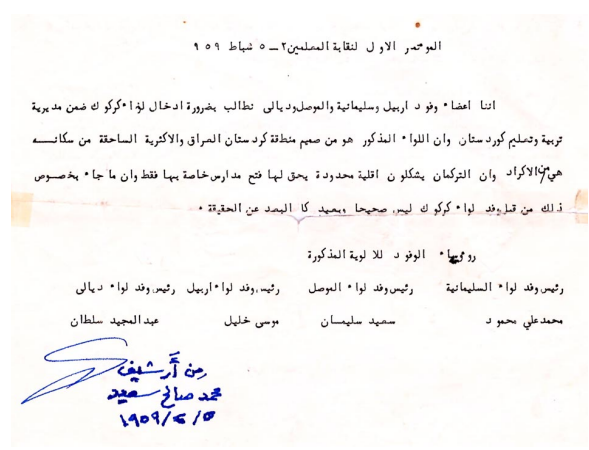 الموتمر الاول لنقابة المعلمين ٢ - ٥ شباط ٩٥٩
اننا اعضاء وفود اربيل وسليمانية والموصل وديالى نطالب بضرورة ادخال لواء كركوك ضمن مديرية
تربية وتعليم كوردستان وان اللواء المذكور هو من صميم منطقة كردستان العراق والاكثرية الساحقة من سكانه
هي من الاكراد وان التركمان يشكلون اقلية محدودة يحق لها فتح مدارس خاصة بها فقط وان ما جاء بخصوص
ذلك من قبل وفد لواء كركوك ليس صحيحا وبعيد كل البعد عن الحقيقة .
روءساء الوفود للالوية المذكورة
رئيس وفد لواء السليمانية رئيس وفد لواء الموصل رئيس وفد لواء اربيل رئيس وفد لواء ديالى
محمد علي محمود سعيد سليمان موسى خليل عبد المجيد سلطان
من أرشيف
محمد صالح سعيد
١٩٥٩/٢/٥